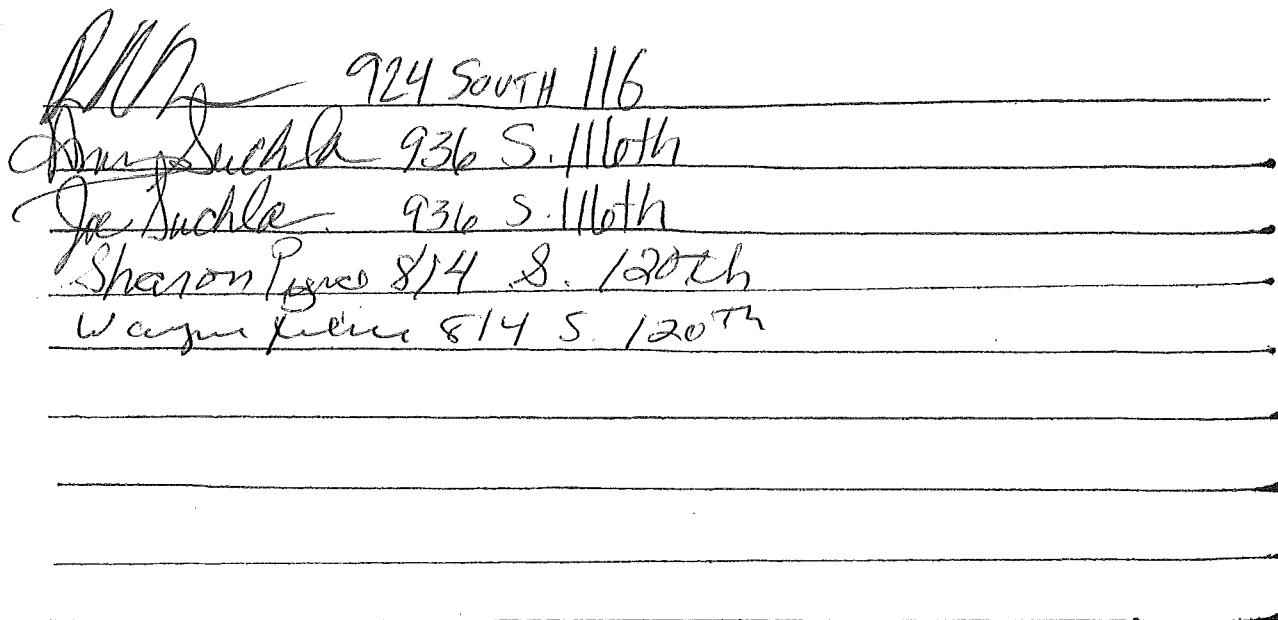 924 SOUTH 116
Amy Suchla 936 S. 116th
Joe Suchla 936 S. 116th
Sharon 814 S. 120th
Wayne 814 S. 120Th